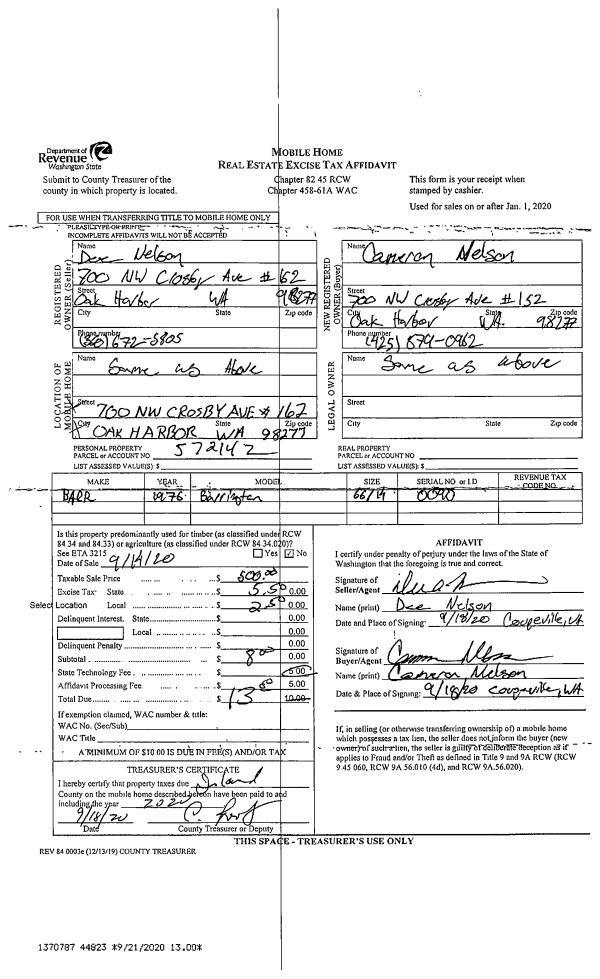 Department of
Revenue
Washington State
MOBILE HOME
REAL ESTATE EXCISE TAX AFFIDAVIT
Submit to County Treasurer of the
county in which property is located.
Chapter 82 45 RCW
Chapter 458-61A WAC
This form is your receipt when
stamped by cashier.
Used for sales on or after Jan. 1, 2020
FOR USE WHEN TRANSFERRING TITLE TO MOBILE HOME ONLY
PLEASE TYPE OR PRINT
INCOMPLETE AFFIDAVITS WILL NOT BE ACCEPTED
REGISTERED
OWNER (Seller)
Name
Dee Nelson
700 NW Crosby Ave # 162
Street
Oak Harbor WA 98277
City State Zip code
Phone number
(360) 672-5805
NEW REGISTERED
OWNER (Buyer)
Name
Cameron Nelson
700 NW Crosby Ave # 152
Street
Oak Harbor WA. 98277
City State Zip code
Phone number
(425) 879-0962
LOCATION OF
MOBILE HOME
Name
Same as Above
Street
700 NW CROSBY AVE # 162
City State Zip code
OAK HARBOR WA 98277
LEGAL OWNER
Name
Same as above
Street
City State Zip code
PERSONAL PROPERTY
PARCEL or ACCOUNT NO 572142
LIST ASSESSED VALUE(S) $
REAL PROPERTY
PARCEL or ACCOUNT NO.
LIST ASSESSED VALUE(S): $
MAKE YEAR MODEL SIZE SERIAL NO or I D REVENUE TAX CODE NO.
BARR 1976 Barrington 66/14 0090
Is this property predominantly used for timber (as classified under RCW
84.34 and 84.33) or agriculture (as classified under RCW 84.34.020)?
See ETA 3215 Yes ✓ No
Date of Sale 9/14/20
Taxable Sale Price $ 500.00
Excise Tax· State $ 5.50 0.00
Select Location Local $ 2.50 0.00
Delinquent Interest. State $ 0.00
Local $ 0.00
Delinquent Penalty $ 0.00
Subtotal $ 8.00 0.00
State Technology Fee $ 5.00
Affidavit Processing Fee $ 5.00
Total Due $ 13.00 10.00
If exemption claimed, WAC number & title:
WAC No. (Sec/Sub)
WAC Title
A MINIMUM OF $10.00 IS DUE IN FEE(S) AND/OR TAX
TREASURER'S CERTIFICATE
I hereby certify that property taxes due Island
County on the mobile home described hereon have been paid to and
including the year 2020
9/18/20
Date County Treasurer or Deputy
AFFIDAVIT
I certify under penalty of perjury under the laws of the State of
Washington that the foregoing is true and correct.
Signature of
Seller/Agent
Name (print) Dee Nelson
Date and Place of Signing: 9/18/20 Coupeville, WA
Signature of
Buyer/Agent
Name (print) Cameron Nelson
Date & Place of Signing: 9/18/20 Coupeville, WA
If, in selling (or otherwise transferring ownership of) a mobile home
which possesses a tax lien, the seller does not inform the buyer (new
owner) of such a lien, the seller is guilty of deliberate deception as it
applies to Fraud and/or Theft as defined in Title 9 and 9A RCW (RCW
9 45 060, RCW 9A 56.010 (4d), and RCW 9A.56.020).
THIS SPACE - TREASURER'S USE ONLY
REV 84 0003e (12/13/19) COUNTY TREASURER
1370787 44823 *9/21/2020 13.00*